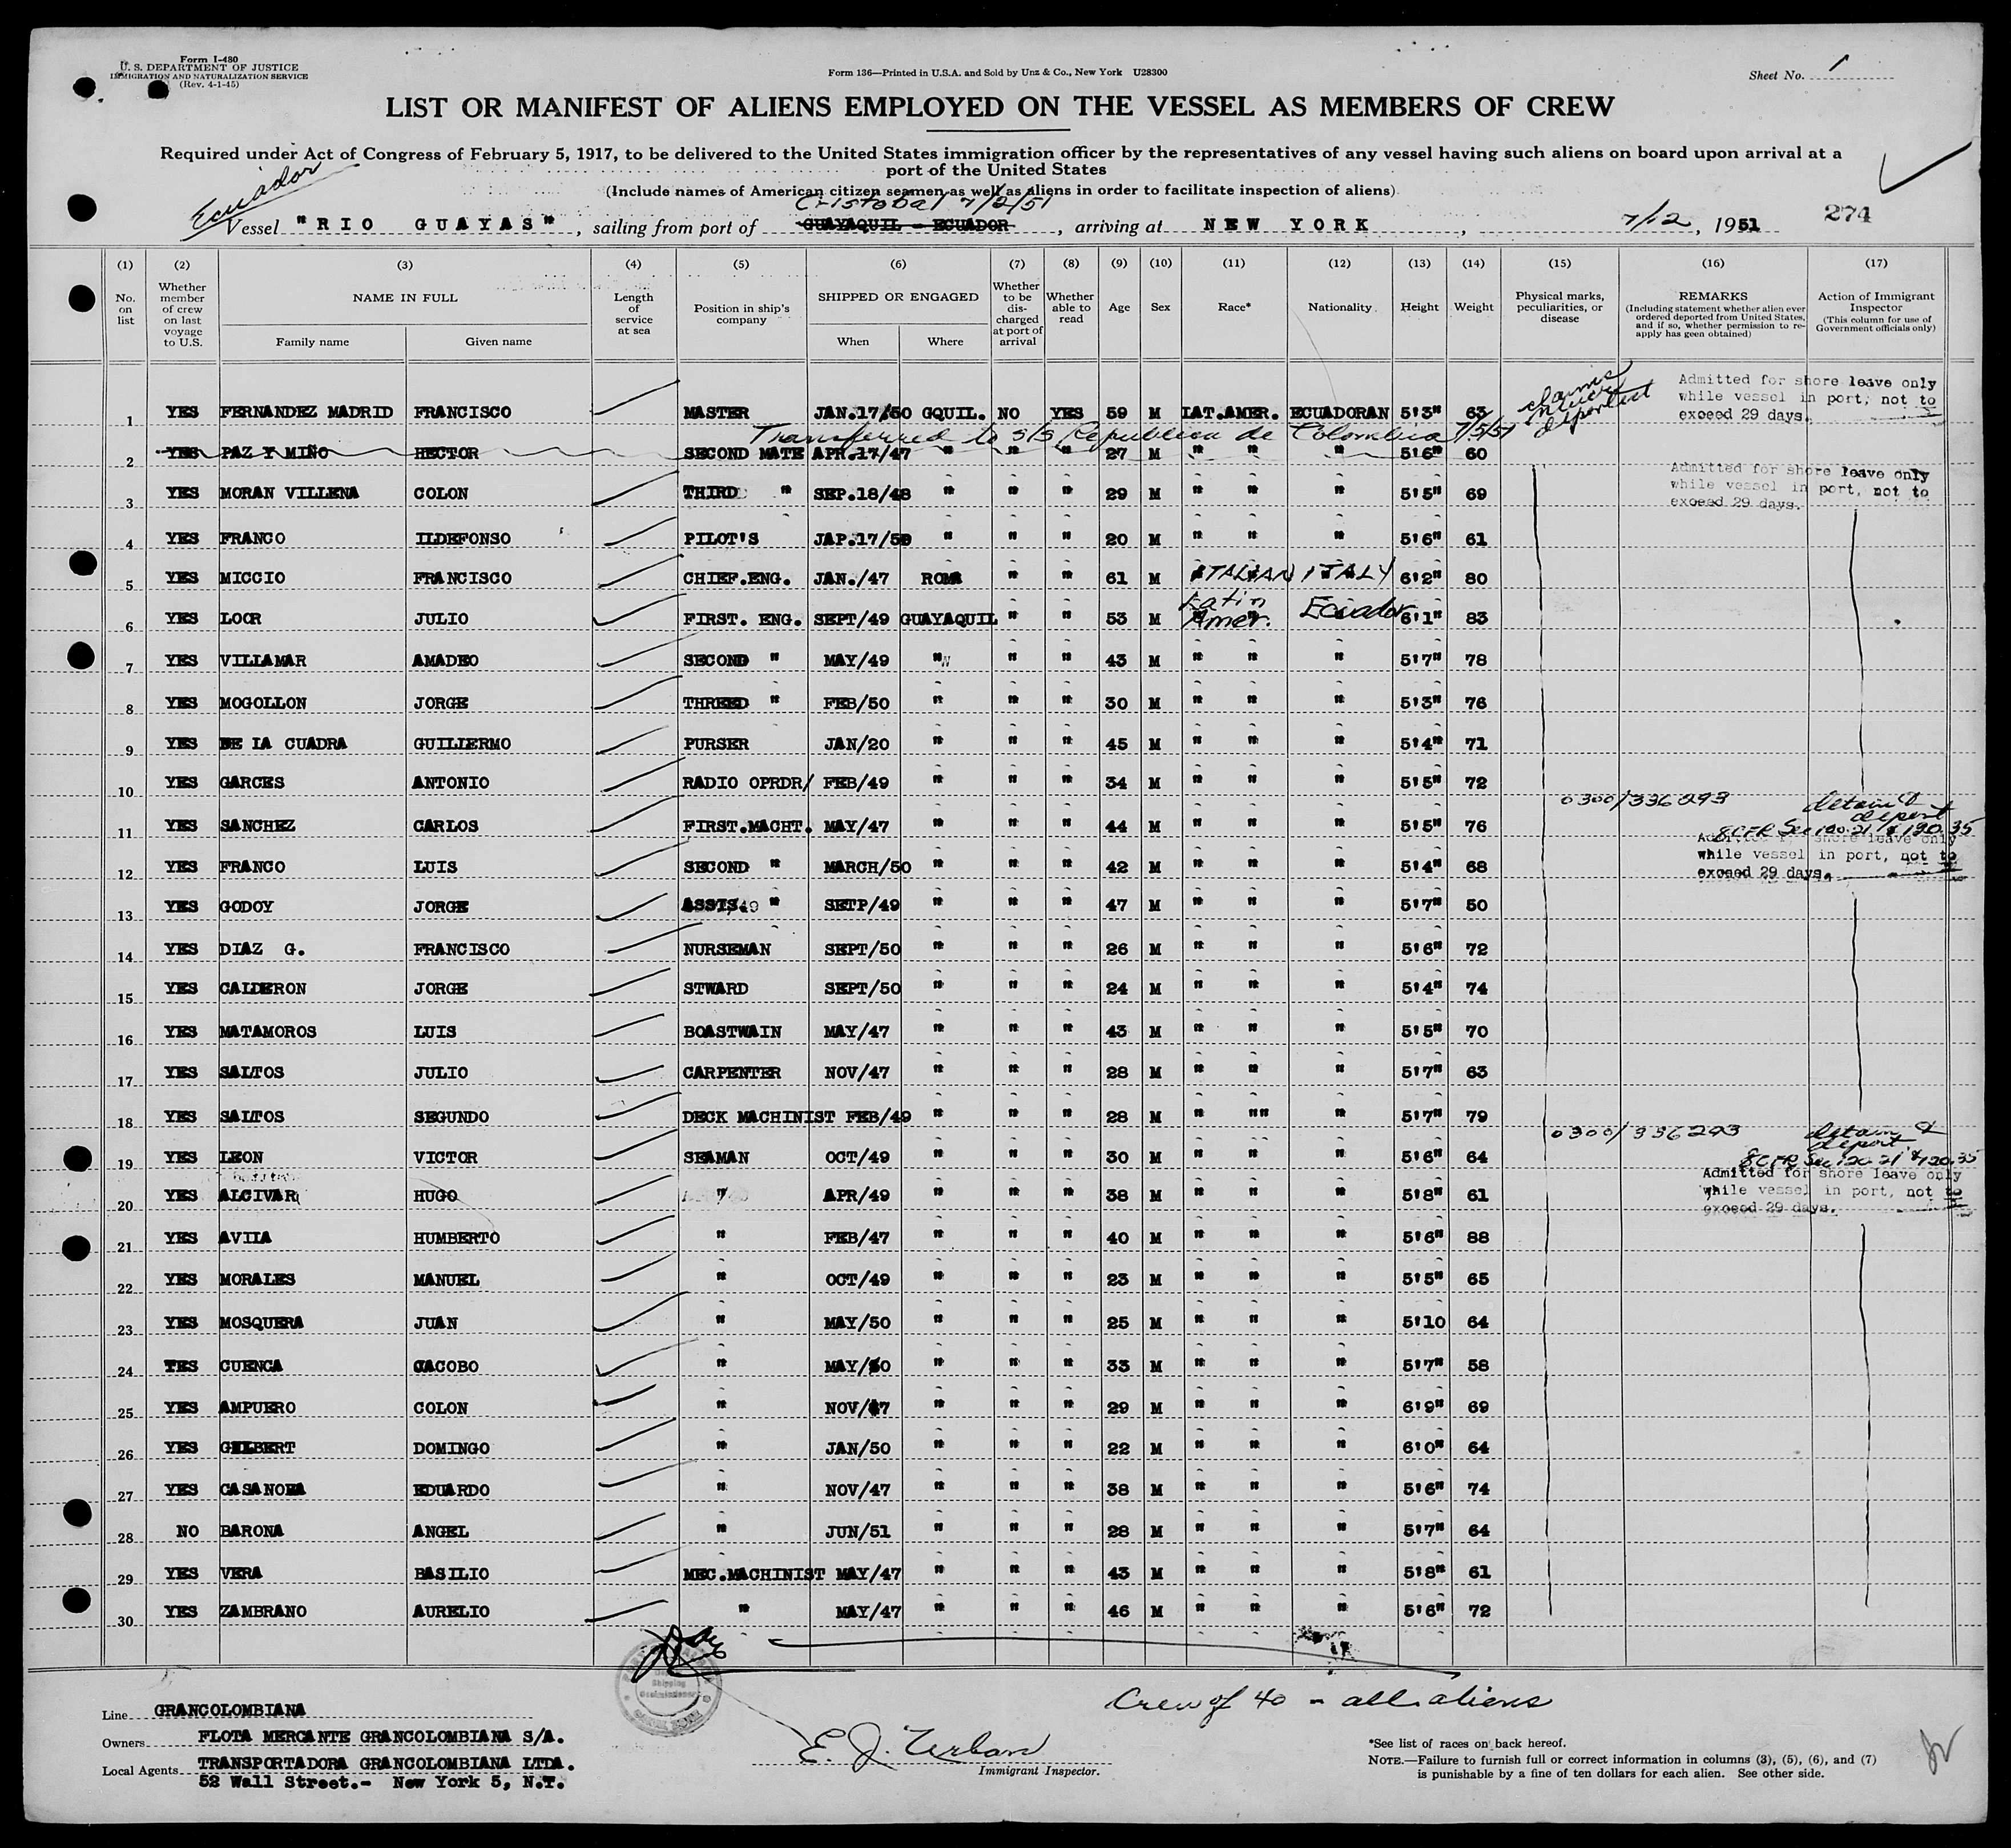 Form I-480
U. S. DEPARTMENT OF JUSTICE
IMMIGRATION AND NATURALIZATION SERVICE
(Rev. 4-1-45)
Form 136—Printed in U.S.A. and Sold by Unz & Co., New York U28300
Sheet No. 1
LIST OR MANIFEST OF ALIENS EMPLOYED ON THE VESSEL AS MEMBERS OF CREW
Required under Act of Congress of February 5, 1917, to be delivered to the United States immigration officer by the representatives of any vessel having such aliens on board upon arrival at a
port of the United States
(Include names of American citizen seamen as well as aliens in order to facilitate inspection of aliens)
Ecuador
Cristobal 7/2/51
Vessel "RIO GUAYAS", sailing from port of GUAYAQUIL - ECUADOR, arriving at NEW YORK, 7/12, 1951
274
(1) (2) (3) (4) (5) (6) (7) (8) (9) (10) (11) (12) (13) (14) (15) (16) (17)
No. on list
Whether member of crew on last voyage to U.S.
NAME IN FULL
Family name
Given name
Length of service at sea
Position in ship's company
SHIPPED OR ENGAGED
When
Where
Whether to be discharged at port of arrival
Whether able to read
Age
Sex
Race*
Nationality
Height
Weight
Physical marks, peculiarities, or disease
REMARKS
(Including statement whether alien ever ordered deported from United States, and if so, whether permission to reapply has geen obtained)
Action of Immigrant Inspector
(This column for use of Government officials only)
1 YES FERNANDEZ MADRID FRANCISCO MASTER JAN.17/50 GQUIL. NO YES 59 M LAT.AMER. ECUADORAN 5'3" 63
claims never deported
Admitted for shore leave only
while vessel in port, not to
exceed 29 days.
Transferred to S/S Republica de Colombia 7/5/51
2 YES PAZ Y MIÑO HECTOR SECOND MATE APR.17/47 " " " 27 M " " " 5'6" 60
3 YES MORAN VILLENA COLON THIRD " SEP.18/48 " " " 29 M " " " 5'5" 69
Admitted for shore leave only
while vessel in port, not to
exceed 29 days.
4 YES FRANCO ILDEFONSO PILOT'S JAP.17/50 " " " 20 M " " " 5'6" 61
5 YES MICCIO FRANCISCO CHIEF.ENG. JAN./47 ROMA " " 61 M ITALIAN ITALY 6'2" 80
6 YES LOOR JULIO FIRST. ENG. SEPT/49 GUAYAQUIL " " 53 M Latin Amer. Ecuador 6'1" 83
7 YES VILLAMAR AMADEO SECOND " MAY/49 " " " 43 M " " " 5'7" 78
8 YES MOGOLLON JORGE THREED " FEB/50 " " " 30 M " " " 5'3" 76
9 YES DE LA CUADRA GUILLERMO PURSER JAN/20 " " " 45 M " " " 5'4" 71
10 YES GARCES ANTONIO RADIO OPRDR/ FEB/49 " " " 34 M " " " 5'5" 72
0300/336293 detain & deport
8 CFR Sec 120.21 & 120.35
11 YES SANCHEZ CARLOS FIRST.MACHT. MAY/47 " " " 44 M " " " 5'5" 76
Admitted for shore leave only
while vessel in port, not to
exceed 29 days.
12 YES FRANCO LUIS SECOND " MARCH/50 " " " 42 M " " " 5'4" 68
13 YES GODOY JORGE ASSTS. " SETP/49 " " " 47 M " " " 5'7" 50
14 YES DIAZ G. FRANCISCO NURSEMAN SEPT/50 " " " 26 M " " " 5'6" 72
15 YES CALDERON JORGE STWARD SEPT/50 " " " 24 M " " " 5'4" 74
16 YES MATAMOROS LUIS BOASTWAIN MAY/47 " " " 43 M " " " 5'5" 70
17 YES SALTOS JULIO CARPENTER NOV/47 " " " 28 M " " " 5'7" 63
18 YES SALTOS SEGUNDO DECK MACHINIST FEB/49 " " " 28 M " "" " 5'7" 79
0300/336293 detain & deport
8 CFR Sec 120.21 & 120.35
19 YES LEON VICTOR SEAMAN OCT/49 " " " 30 M " " " 5'6" 64
Admitted for shore leave only
while vessel in port, not to
exceed 29 days.
20 YES ALCIVAR HUGO " APR/49 " " " 38 M " " " 5'8" 61
21 YES AVILA HUMBERTO " FEB/47 " " " 40 M " " " 5'6" 88
22 YES MORALES MANUEL " OCT/49 " " " 23 M " " " 5'5" 65
23 YES MOSQUERA JUAN " MAY/50 " " " 25 M " " " 5'10 64
24 TES CUENCA JACOBO " MAY/50 " " " 33 M " " " 5'7" 58
25 YES AMPUERO COLON " NOV/47 " " " 29 M " " " 6'9" 69
26 YES GILBERT DOMINGO " JAN/50 " " " 22 M " " " 6'0" 64
27 YES CASANOVA EDUARDO " NOV/47 " " " 38 M " " " 5'6" 74
28 NO BARONA ANGEL " JUN/51 " " " 28 M " " " 5'7" 64
29 YES VERA BASILIO MEC.MACHINIST MAY/47 " " " 43 M " " " 5'8" 61
30 YES ZAMBRANO AURELIO " MAY/47 " " " 46 M " " " 5'6" 72
Crew of 40 - all aliens
Line GRANCOLOMBIANA
Owners FLOTA MERCANTE GRANCOLOMBIANA S/A.
Local Agents TRANSPORTADORA GRANCOLOMBIANA LTDA.
52 Wall Street.- New York 5, N.T.
E. J. Urban
Immigrant Inspector.
*See list of races on back hereof.
NOTE.—Failure to furnish full or correct information in columns (3), (5), (6), and (7)
is punishable by a fine of ten dollars for each alien. See other side.